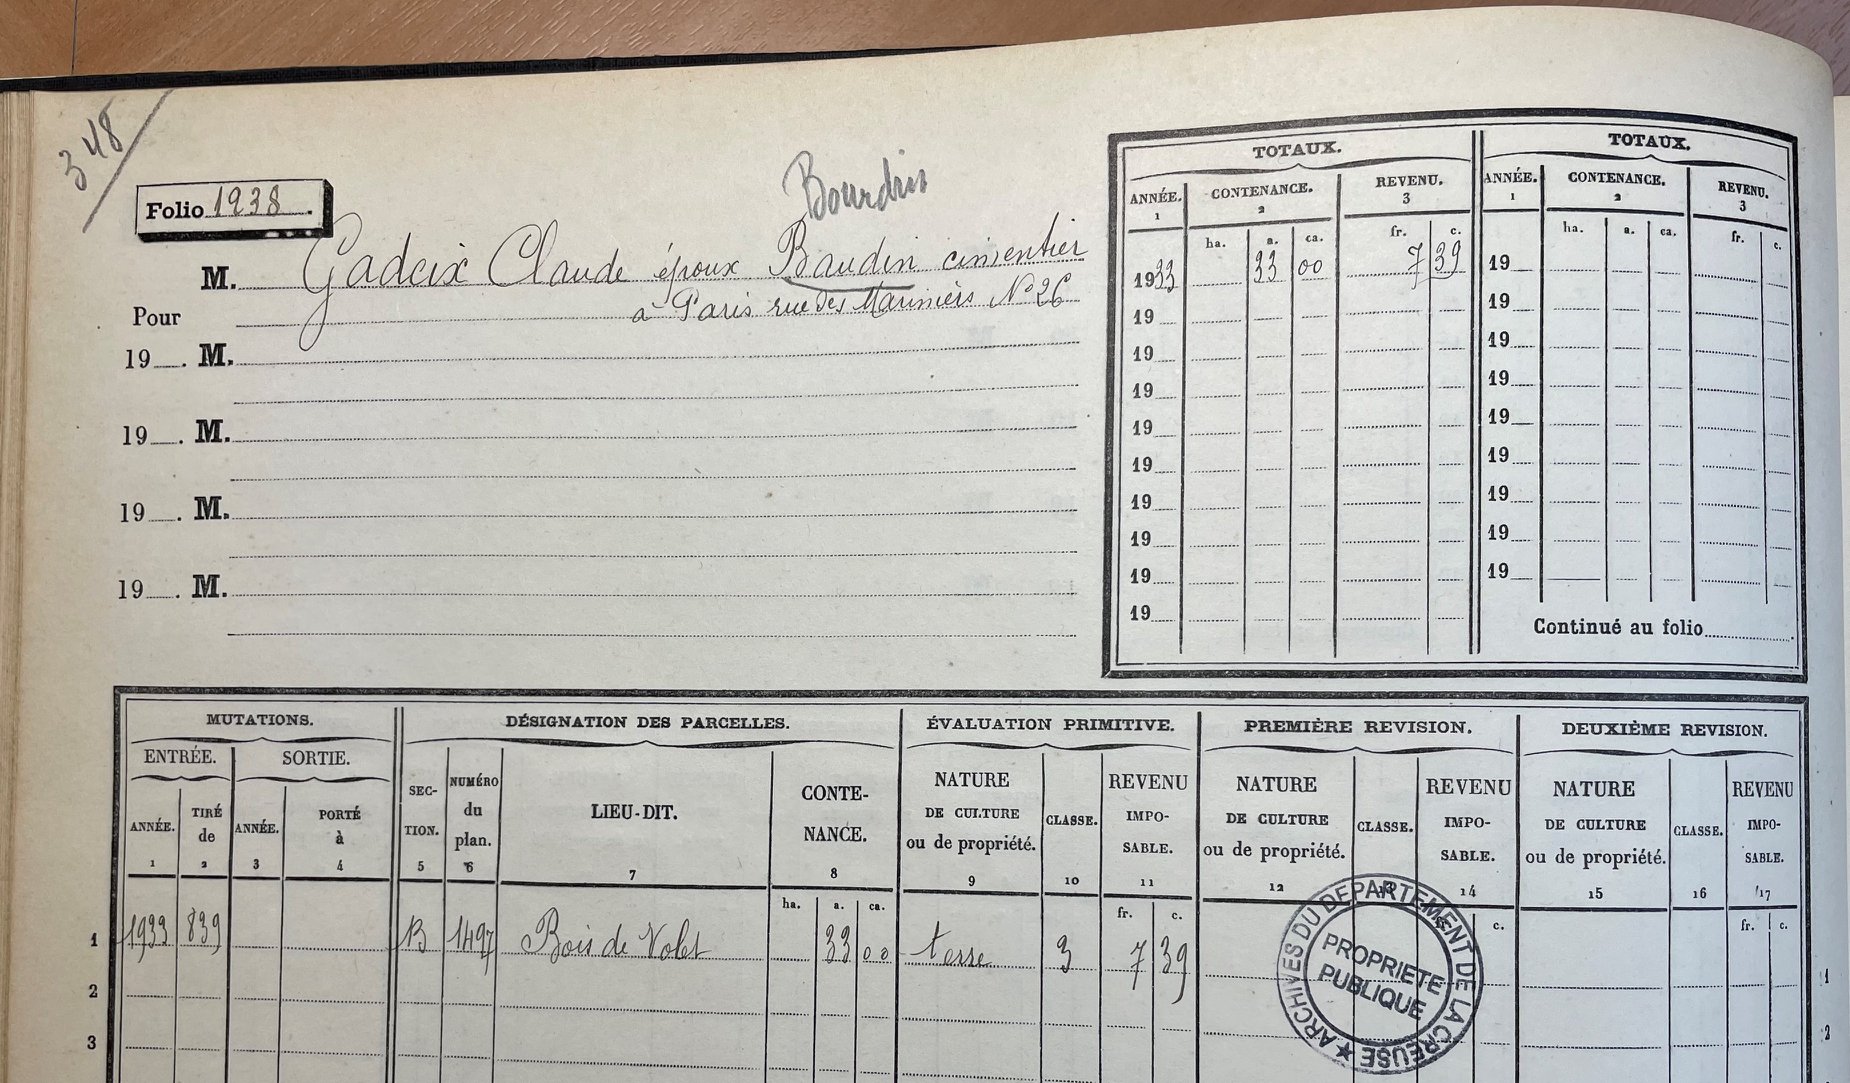 348
Folio 1938.
Bourdin
M. Gadeix Claude époux Baudin cimentier
Pour à Paris rue des Mariniers N° 26
19 . M.
19 . M.
19 . M.
19 . M.
TOTAUX. TOTAUX.
ANNÉE. CONTENANCE. REVENU. ANNÉE. CONTENANCE. REVENU.
1 2 3 1 2 3
ha. a. ca. fr. c. ha. a. ca. fr. c.
1933 33 00 7 39 19
19 19
19 19
19 19
19 19
19 19
19 19
19 19
19 19
19
Continué au folio
MUTATIONS. DÉSIGNATION DES PARCELLES. ÉVALUATION PRIMITIVE. PREMIÈRE REVISION. DEUXIÈME REVISION.
ENTRÉE. SORTIE.
ANNÉE. TIRÉ de ANNÉE. PORTÉ à SEC-TION. NUMÉRO du plan. LIEU-DIT. CONTE-NANCE. NATURE DE CULTURE ou de propriété. CLASSE. REVENU IMPO-SABLE. NATURE DE CULTURE ou de propriété. CLASSE. REVENU IMPO-SABLE. NATURE DE CULTURE ou de propriété. CLASSE. REVENU IMPO-SABLE.
1 2 3 4 5 6 7 8 9 10 11 12 13 14 15 16 17
ha. a. ca. fr. c. fr. c. fr. c.
1 1933 839 B 1497 Bois de Volet 33 00 terre 3 7 39 1
2 2
3
ARCHIVES DU DEPARTEMENT DE LA CREUSE ★
PROPRIETE
PUBLIQUE